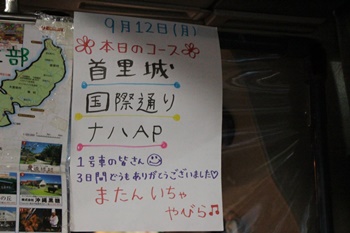 9月12日(月)
本日のコース
首里城
国際通り
ナハAP
1号車の皆さん
3日間どうもありがとうございました♡
またんいちゃ
やびら♫
部